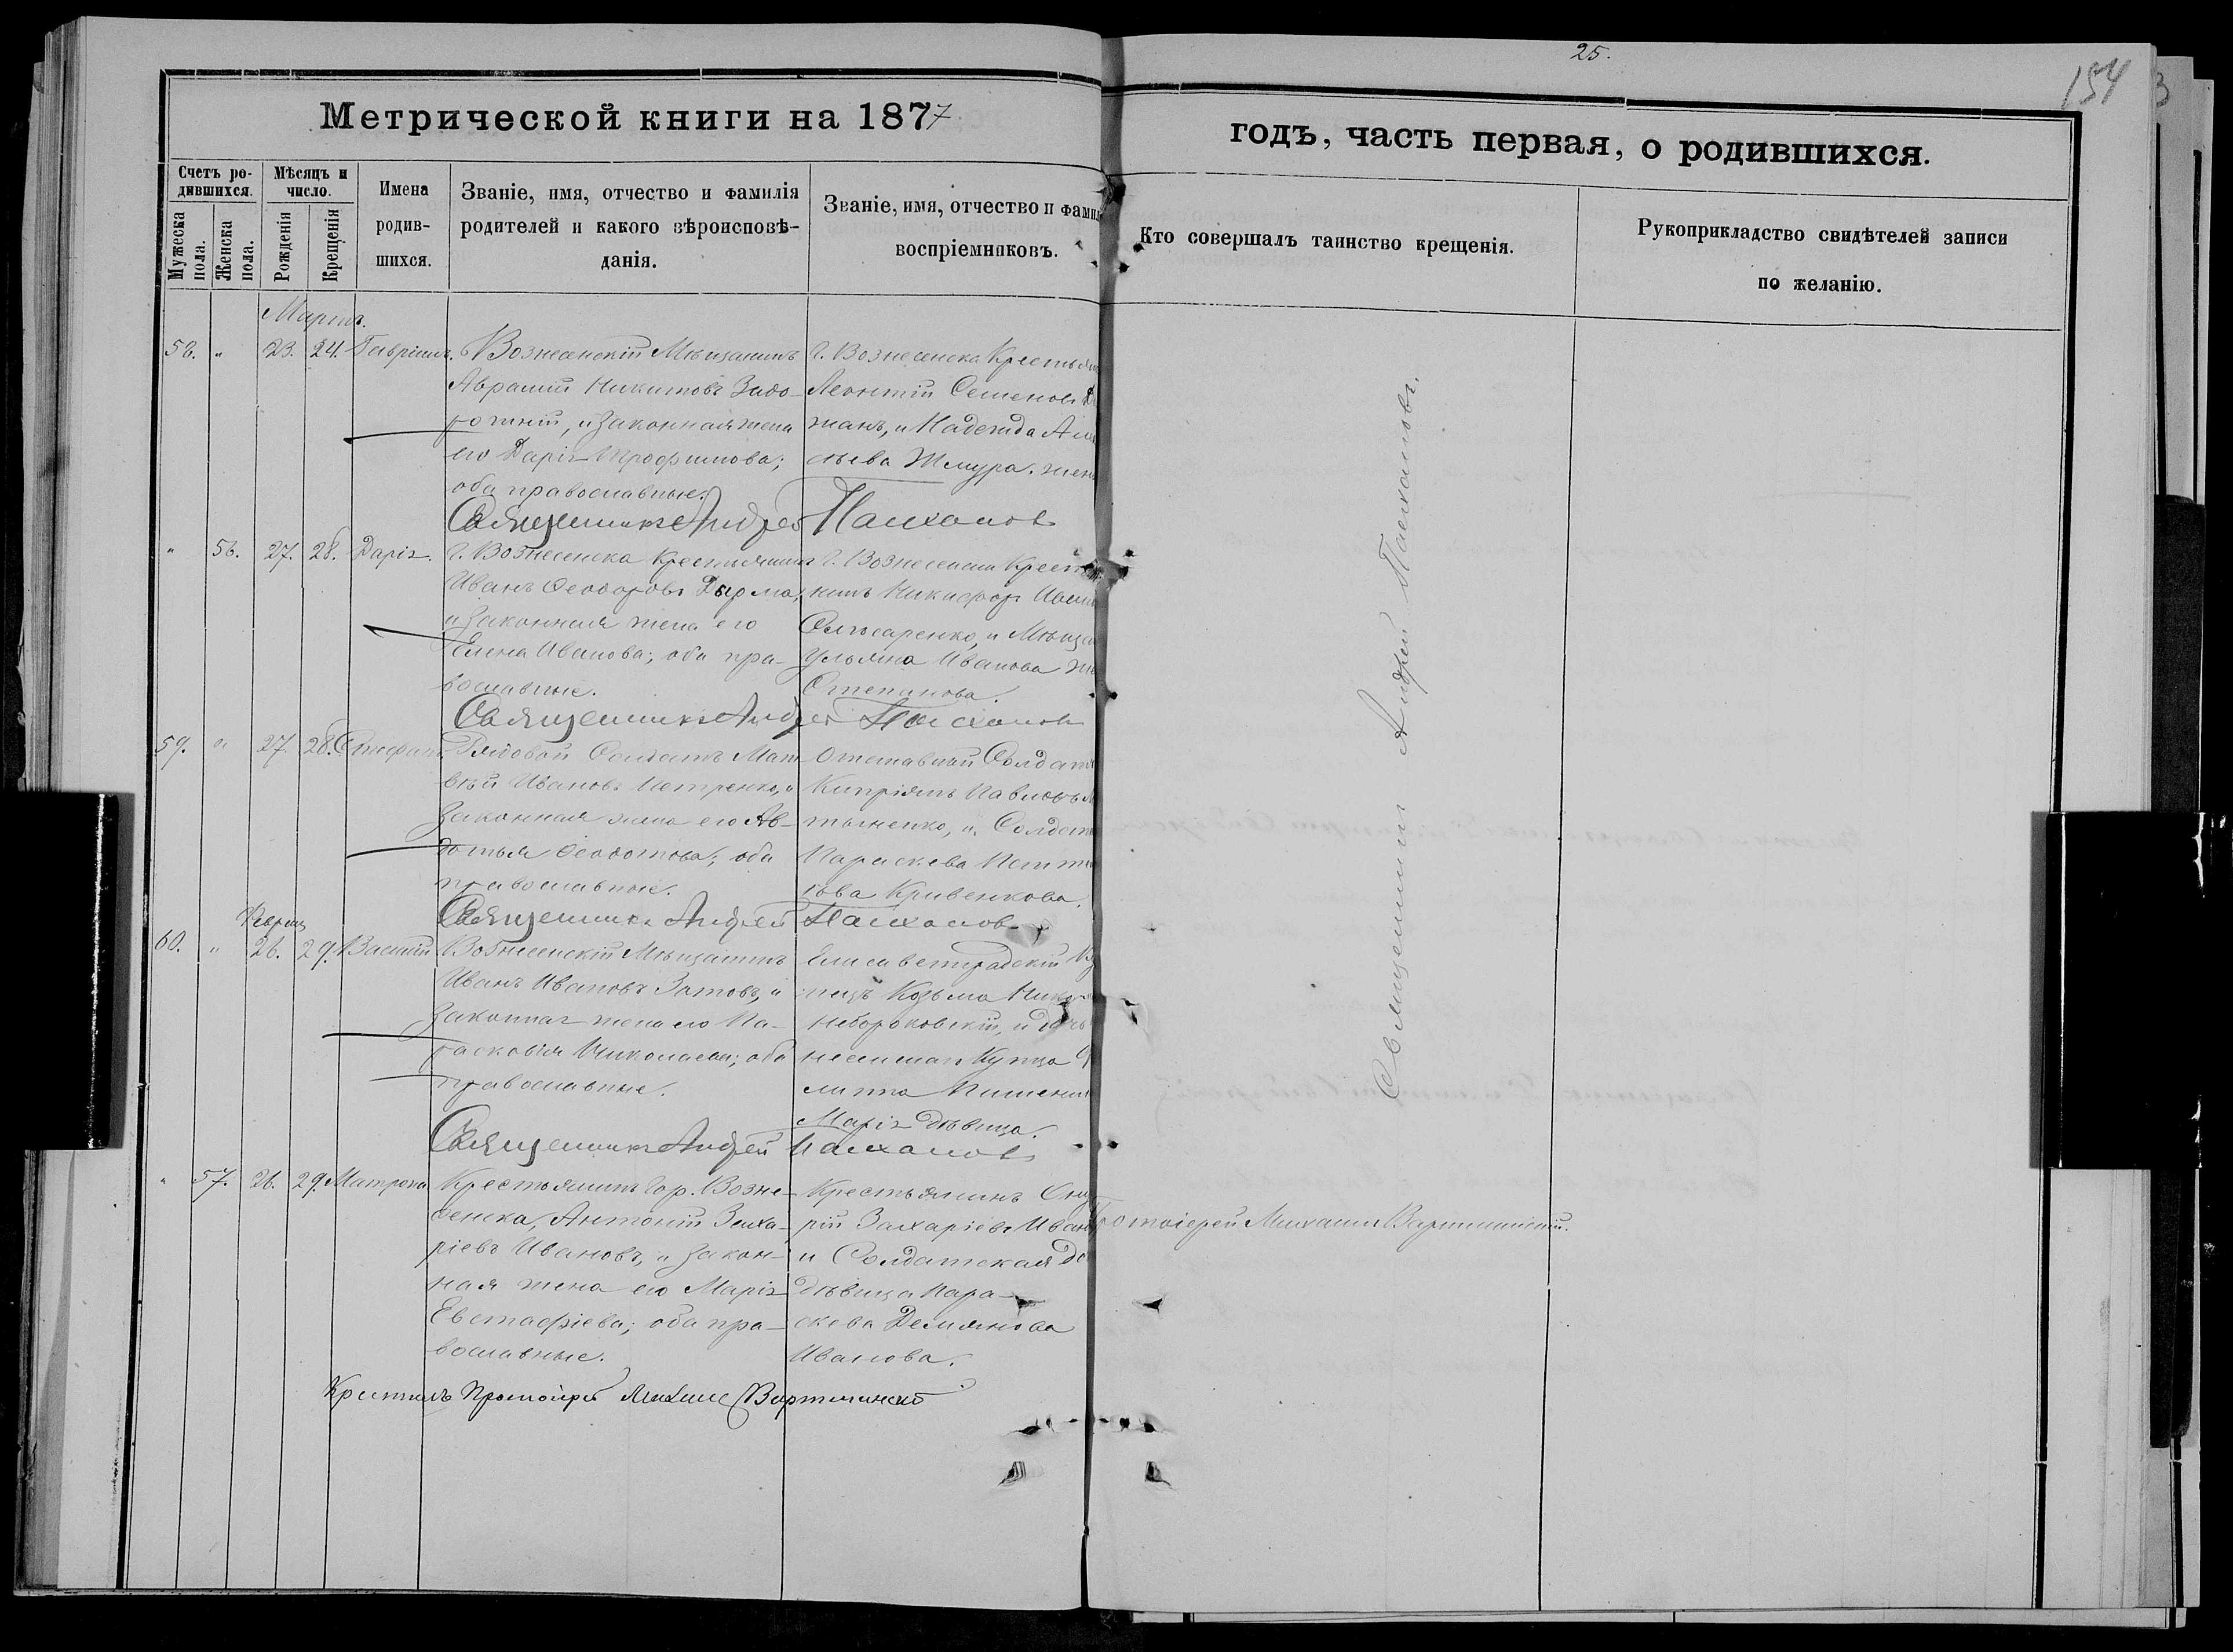 25.
154
3
Метрической книги на 1877
годъ, часть первая, о родившихся.
Счетъ родившихся.
Мужеска пола.
Женска пола.
Мѣсяцъ и число.
Рожденія
Крещенія
Имена
родив-
шихся.
Званіе, имя, отчество и фамилія
родителей и какого вѣроисповѣ-
данія.
Званіе, имя, отчество и фами
воспріемниковъ.
Кто совершалъ таинство крещенія.
Рукоприкладство свидѣтелей записи
по желанію.
Мартъ.
58. " 23. 24. Гавріилъ.
Вознесенскій Мѣщанинъ
Аврамій Никитовъ Задо-
рожній, и законная жена
его Дарія Трофимова;
оба православные.
г. Вознесенска Крестьян
Леонтій Семеновъ
жанъ, и Надежда
сѣева Жмура. жен
Священникъ Андрей Пасхаловъ
" 56. 27. 28. Дарія.
г. Вознесенска Крестьянинъ
Иванъ Ѳеодоровъ Дырма,
и законная жена его
Елена Иванова; оба пра-
вославные.
г. Вознесенска Крест
нинъ Никифоръ Иван
Слюсаренко, и Мѣща
Ульяна Иванова
Степанова.
Священникъ Андрей Пасхаловъ
59. " 27 28. Стефанъ.
Рядовой Солдатъ Мат-
вѣй Ивановъ Петренко, и
законная жена его Ав-
дотья Ѳедотова; оба
православные.
Отставной Солдатъ
Кипріянъ Павловъ
тыненко, и Солдат
Параскева
това Кривенкова.
Священникъ Андрей Пасхаловъ
Февраль
60. " 26. 29. Василій
Вознесенскій Мѣщанинъ
Иванъ Ивановъ Затовъ, и
законная жена его Па-
расковія Николаева; оба
православные.
Елисаветградскій
пецъ Козьма
и дочь
Купца
липпа
Марія дѣвица.
Священникъ Андрей Пасхаловъ
" 57. 26. 29. Матрона
Крестьянинъ Гор. Возне-
сенска, Антоній Заха-
ріевъ Ивановъ, и закон-
ная жена его Марія
Евстафіева; оба пра-
вославные.
Крестьянинъ Ону
рій Захаріевъ Иван
и Солдатская до
дѣвица Пара-
скева Демянова
Иванова.
Крестилъ Протоіерей Михаилъ Вартминскій
Священникъ Андрей Пасхаловъ.
Протоіерей Михаилъ Вартминскій.